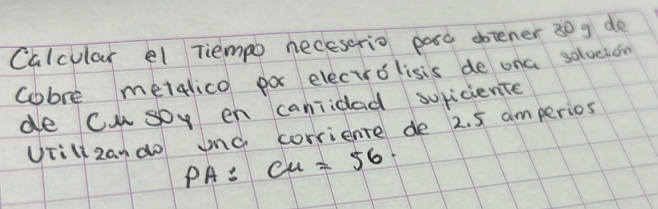 Calcular el Tiempo necesario para obtener 30 g de
Cobre metalico por electrólisis de una solución
de CuSO4 en cantidad suficiente
Utilizando una corriente de 2.5 amperios
PA: Cu = 56.